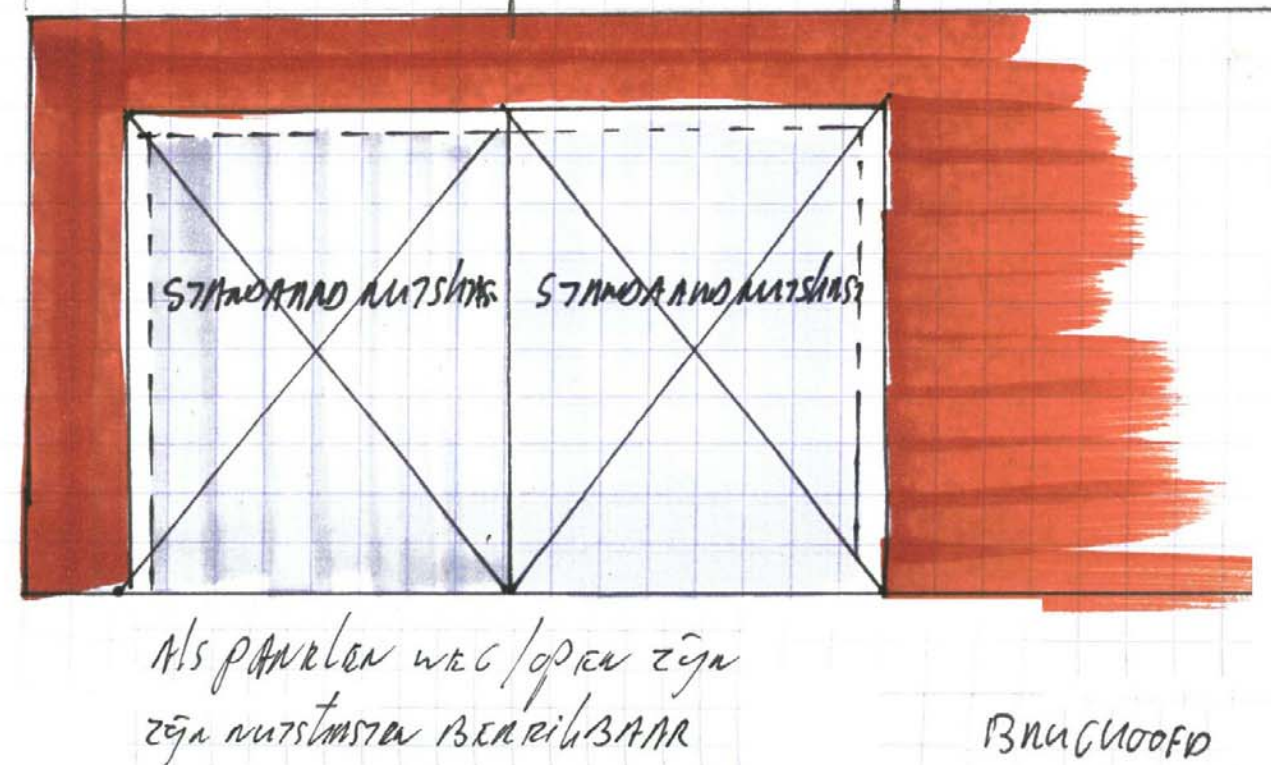 STANDAARD NUTSKAST STANDAARD NUTSKAST
Als PANELEN WEG/OPEN zijn
zijn NUTSKASTEN BEREIKBAAR
BRUGHOOFD